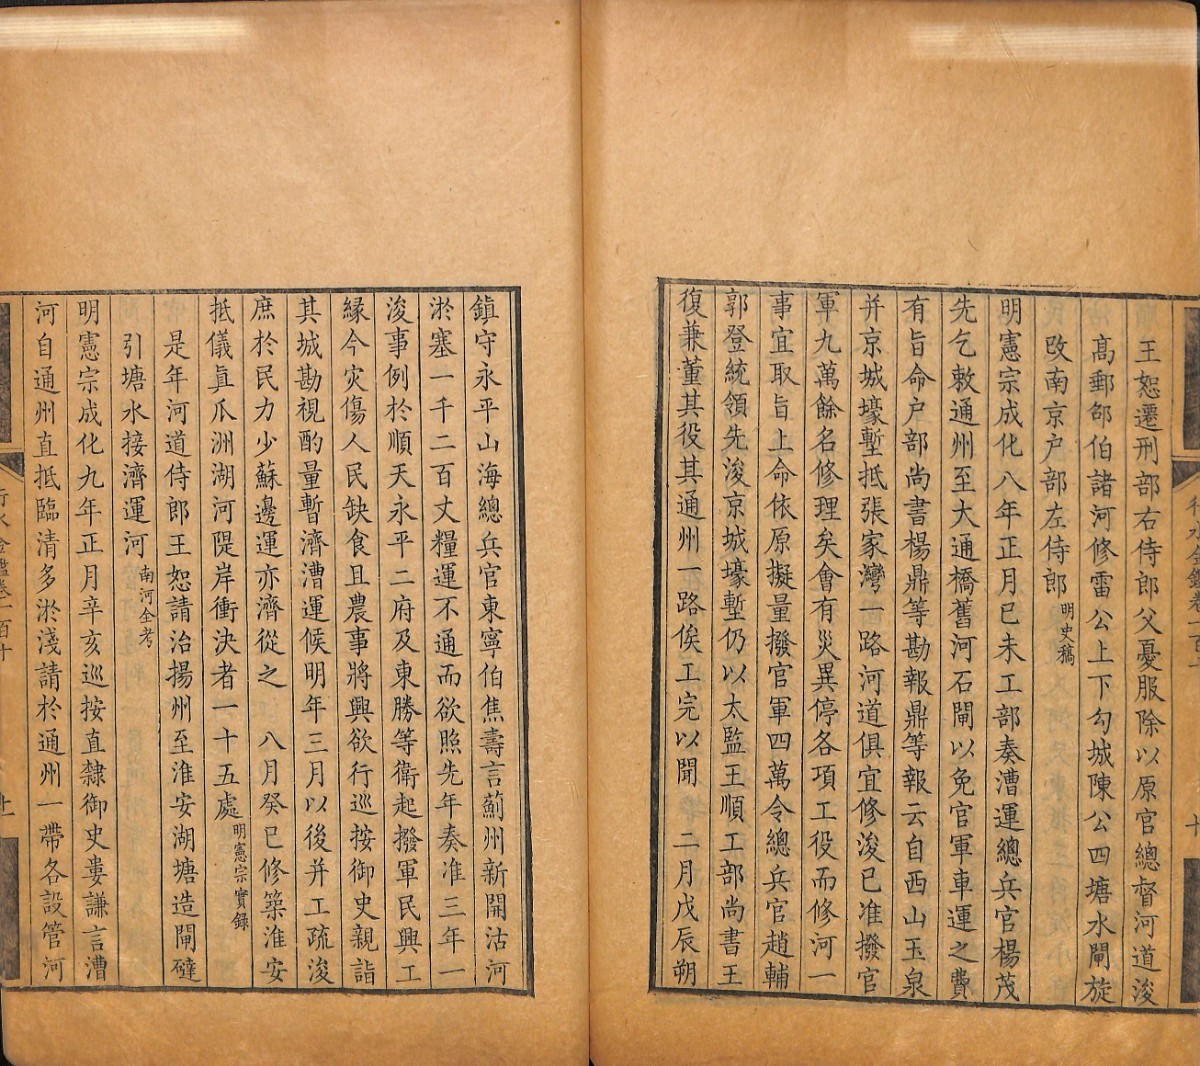 王恕遷刑部右侍郎父憂服除以原官總督河道浚
高郵邵伯諸河修雷公上下勾城陳公四塘水閘旋
改南京户部左侍郎明史稿
明憲宗成化八年正月已未工部奏漕運總兵官楊茂
先乞敕通州至大通橋舊河石閘以免官軍車運之費
有旨命户部尚書楊鼎等勘報鼎等報云自西山玉泉
并京城壕塹抵張家灣一路河道俱宜修浚已准撥官
軍九萬餘名修理矣會有災異停各項工役而修河一
事宜取旨上命依原擬量撥官軍四萬令總兵官趙輔
郭登統領先浚京城壕塹仍以太監王順工部尚書王
復兼董其役其通州一路俟工完以聞　二月戊辰朔
鎮守永平山海總兵官東寧伯焦壽言薊州新開沽河
淤塞一千二百丈糧運不通而欲照先年奏准三年一
浚事例於順天永平二府及東勝等衛起撥軍民興工
緣今灾傷人民缺食且農事將興欲行巡按御史親詣
其城勘視酌量暫濟漕運候明年三月以後并工疏浚
庶於民力少蘇邊運亦濟從之　八月癸巳修築淮安
抵儀眞瓜洲湖河隄岸衝決者一十五處明憲宗實錄
是年河道侍郎王恕請治揚州至淮安湖塘造閘䃮
引塘水接濟運河南河全考
明憲宗成化九年正月辛亥巡按直隸御史婁謙言漕
河自通州直抵臨清多淤淺請於通州一帶各設管河